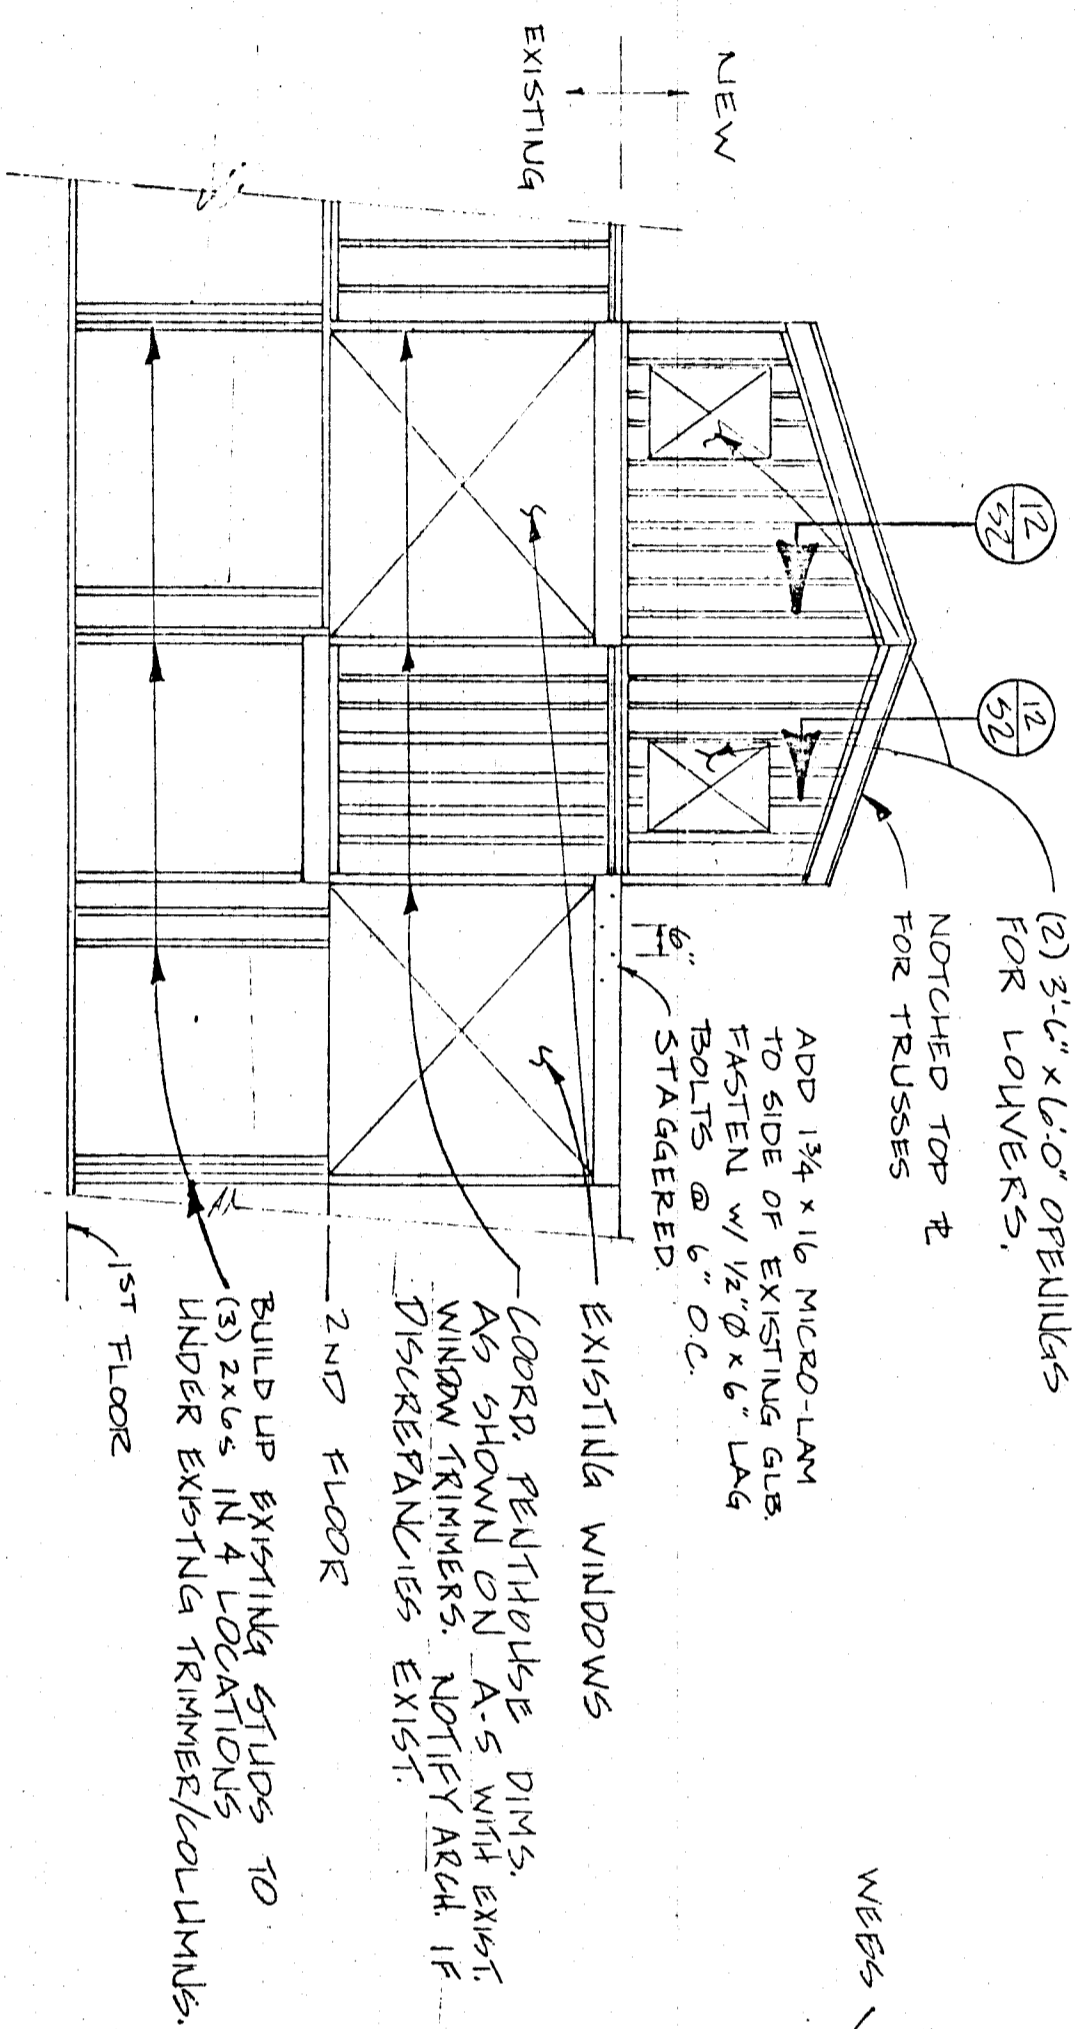 NEW
EXISTING
12
S2
12
S2
(2) 3'-6" x 6'-0" OPENINGS
FOR LOUVERS.
NOTCHED TOP PL
FOR TRUSSES
ADD 1 3/4 x 16 MICRO-LAM
TO SIDE OF EXISTING GLB.
FASTEN W/ 1/2"Ø x 6" LAG
BOLTS @ 6" O.C.
STAGGERED.
6"
EXISTING WINDOWS
COORD. PENTHOUSE DIMS.
AS SHOWN ON A-5 WITH EXIST.
WINDOW TRIMMERS. NOTIFY ARCH. IF
DISCREPANCIES EXIST.
2ND FLOOR
BUILD UP EXISTING STUDS TO
(3) 2x6s IN 4 LOCATIONS
UNDER EXISTNG TRIMMER/COLUMNS.
1ST FLOOR
WEBS